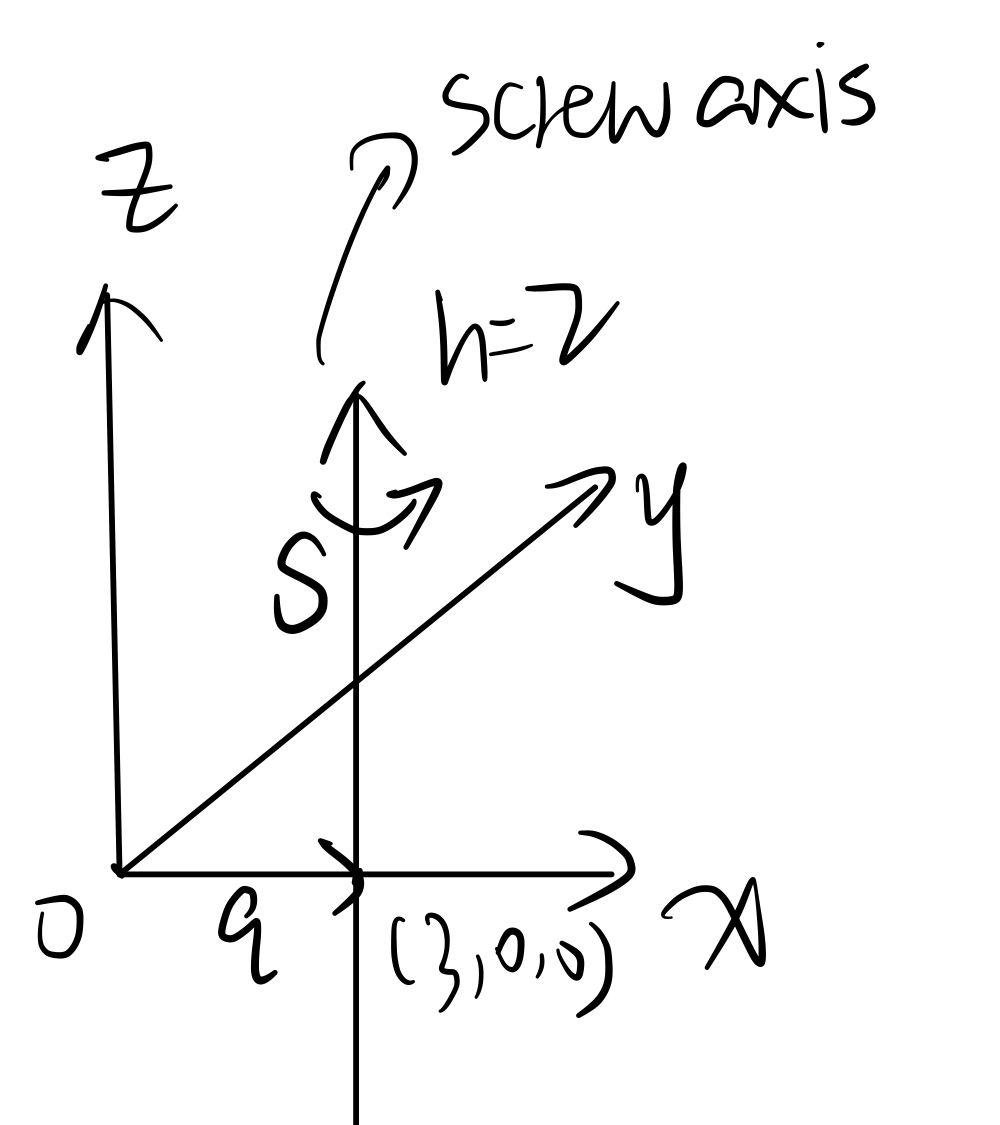 screw axis
z
h=2
y
S
0
q
(3,0,0)
x